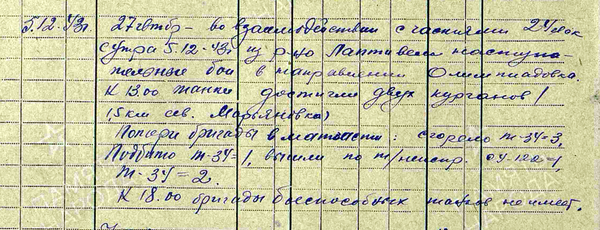 5.12.43г. 27 гвтбр - во взаимодействии с частями 24 ск
с утра 5.12.43г из р-на Лаптивели наступа-
тельные бои в направлении Олимпиадовка.
К 13.00 танки достигли двух курганов /
/5км сев. Марьяновка/
Потери бригады в матчасти: сгорело т-34=3,
Подбито т-34=1, вышли по т/неиспр. СУ-122=1,
т-34=2.
К 18.00 бригады боеспособных танков не имеет.